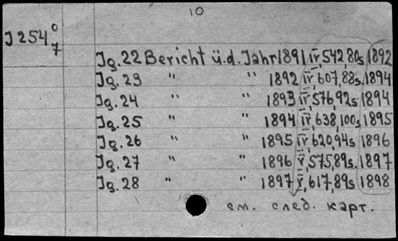 10
J 254 0/7
Jg. 22 Bericht ü.d. Jahr 1891 IV, 542, 80s. 1892
Jg. 23 " " 1892 IV, 607, 88s. 1894
Jg. 24 " " 1893 IV, 576, 92s. 1894
Jg. 25 " " 1894 IV, 638, 100s. 1895
Jg. 26 " " 1895 IV, 620, 94s. 1896
Jg. 27 " " 1896 V, 575, 89s. 1897
Jg. 28 " " 1897 V, 617, 89s. 1898
см. след. карт.